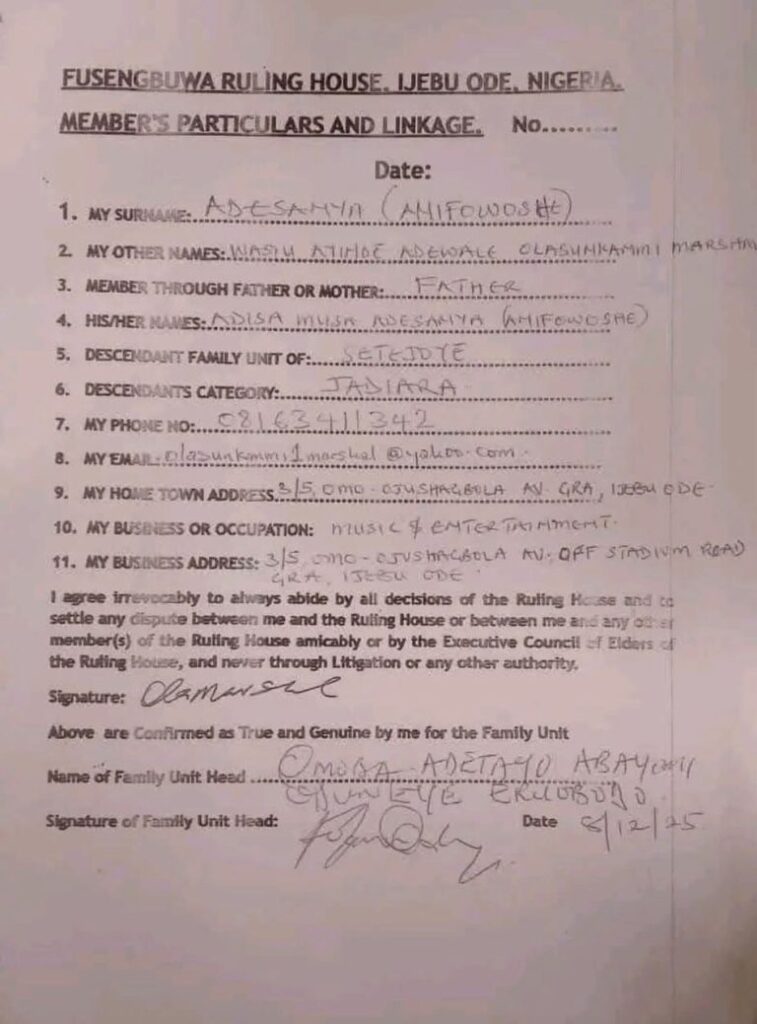 FUSENGBUWA RULING HOUSE, IJEBU ODE, NIGERIA.
MEMBER'S PARTICULARS AND LINKAGE. No.........
Date:
1. MY SURNAME: ADESANYA (ANIFOWOSHE)
2. MY OTHER NAMES: WASIU ADEWALE OLASUNKANMI
3. MEMBER THROUGH FATHER OR MOTHER: FATHER
4. HIS/HER NAMES: ADISA MUSA ADESANYA (ANIFOWOSHE)
5. DESCENDANT FAMILY UNIT OF: SETEJOYE
6. DESCENDANTS CATEGORY: JADIARA
7. MY PHONE NO: 08163411342
8. MY EMAIL
9. MY HOME TOWN ADDRESS 3/5, OMO-OJUSHAGBOLA AV. GRA, IJEBU ODE
10. MY BUSINESS OR OCCUPATION: MUSIC & ENTERTAINMENT.
11. MY BUSINESS ADDRESS: 3/5, OMO-OJUSHAGBOLA AV. OFF STADIUM ROAD
GRA, IJEBU ODE
I agree irrevocably to always abide by all decisions of the Ruling House and to
settle any dispute between me and the Ruling House or between me and any other
member(s) of the Ruling House amicably or by the Executive Council of Elders of
the Ruling House, and never through Litigation or any other authority.
Signature:
Above are Confirmed as True and Genuine by me for the Family Unit
Name of Family Unit Head OMOBA ADETAYO ABAYOMI
Signature of Family Unit Head: Date 8/12/25